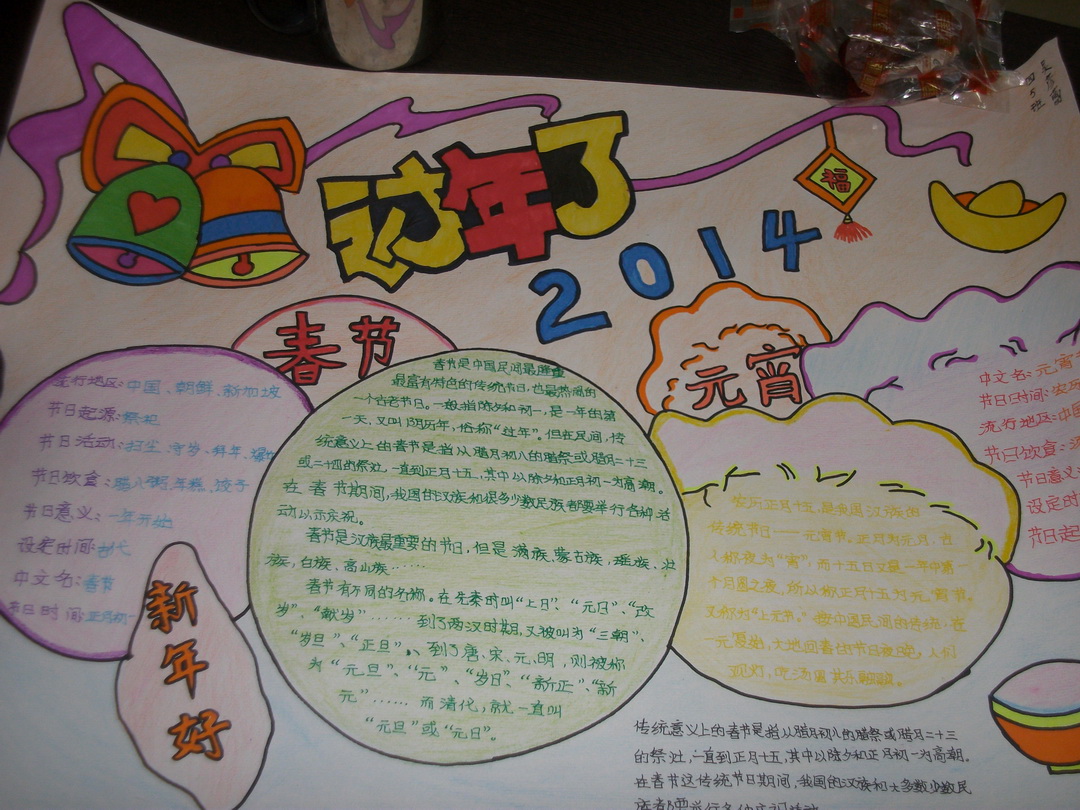 过年了
2014
福
四5班
春节
元宵
流行地区:中国、朝鲜、新加坡
节日起源:祭祀
节日活动:扫尘、守岁、拜年、爆竹
节日饮食:腊八粥、年糕、饺子
节日意义:一年开始
设定时间:古代
中文名:春节
节日时间:正月初一
新年好
春节是中国民间最隆重
最富有特色的传统节日,也最热闹的
一个古老节日。一般指除夕和初一,是一年的第
一天,又叫阴历年,俗称“过年”。但在民间,传
统意义上的春节是指从腊月初八的腊祭或腊月二十三
或二十四的祭灶,一直到正月十五,其中以除夕和正月初一为高潮。
在春节期间,我国的汉族和很多少数民族都要举行各种活
动以示庆祝。
春节是汉族最重要的节日,但是满族、蒙古族、瑶族、壮
族,白族、高山族……
春节有不同的名称。在先秦时叫“上日”、“元日”、“改
岁”、“献岁”……到了两汉时期,又被叫为“三朝”、
“岁旦”、“正旦”、到了唐、宋、元、明,则被称
为“元旦”、“元”、“岁日”、“新正”、“新
元”……而清代,就一直叫
“元旦”或“元日”。
农历正月十五,是我国汉族的
传统节日——元宵节。正月为元月,古
人称夜为“宵”,而十五日又是一年中第一
个月圆之夜,所以称正月十五为元宵节。
又称为“上元节”。按中国民间的传统,在
一元复始,大地回春的节日夜晚,人们
观灯,吃汤圆 其乐融融。
中文名:元宵
节日时间:农历
流行地区:中国
节日饮食:
节日意义
设定时
节日起
传统意义上的春节是指从腊月初八的腊祭或腊月二十三
的祭灶,一直到正月十五,其中以除夕和正月初一为高潮。
在春节这传统节日期间,我国的汉族和大多数少数民
族者都要举行各